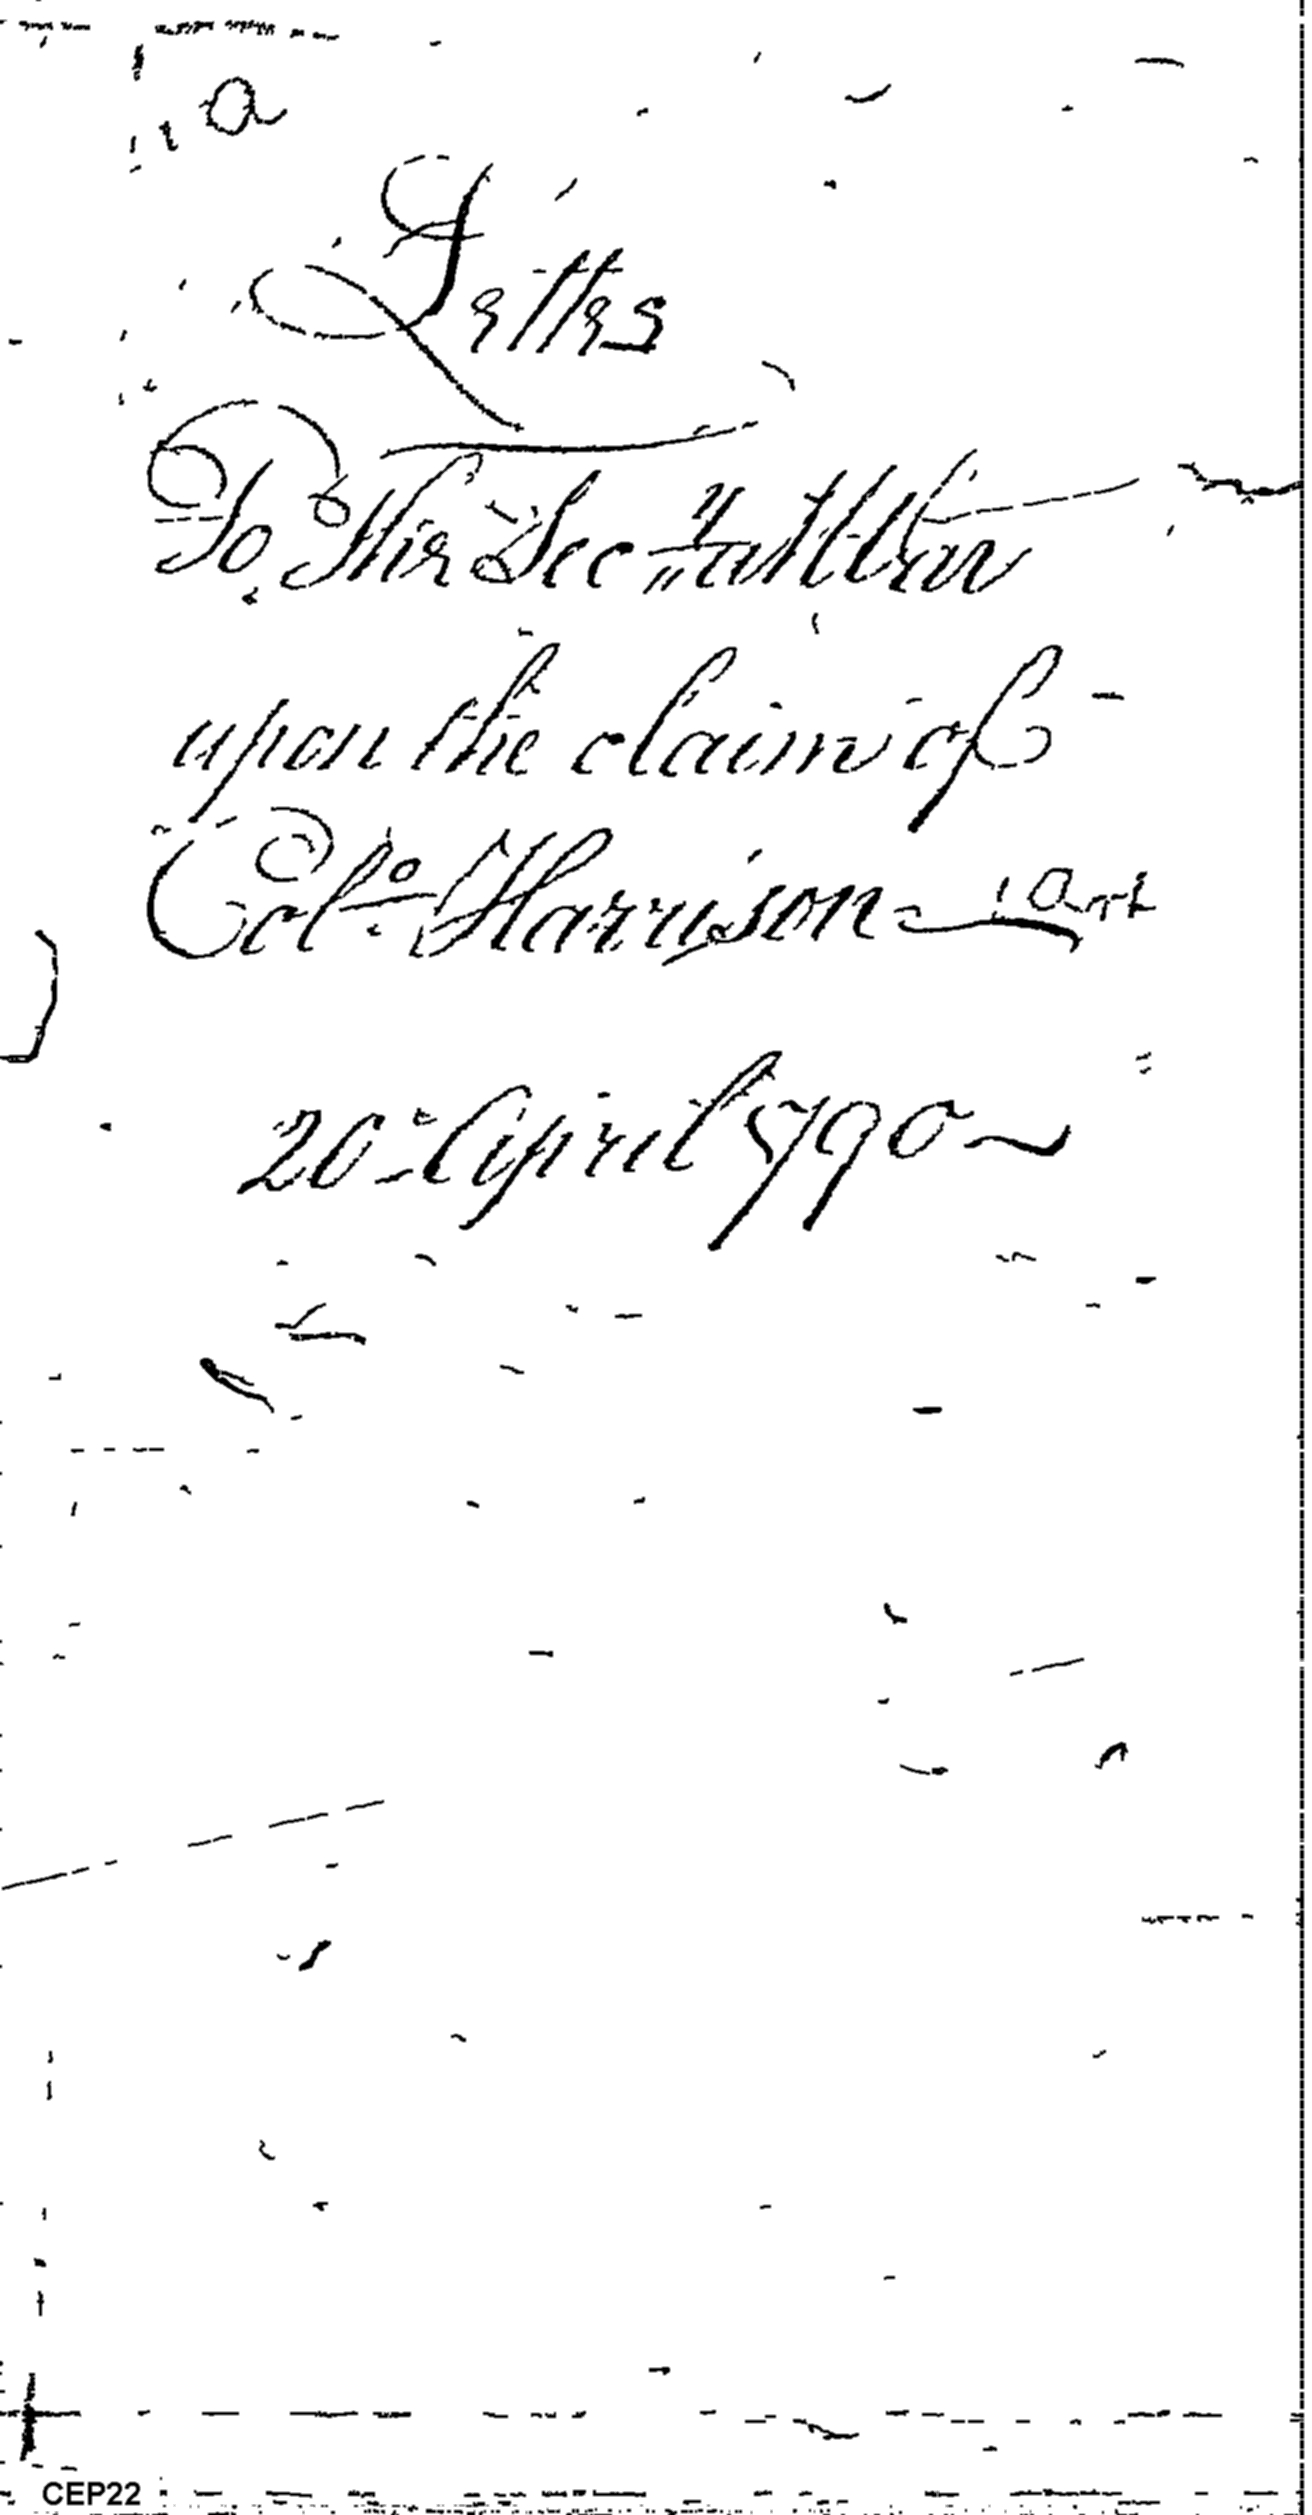 a
Letter
To the Secy at War
upon the claim of
Colo. Harrison Art
20 April 1790
CEP22